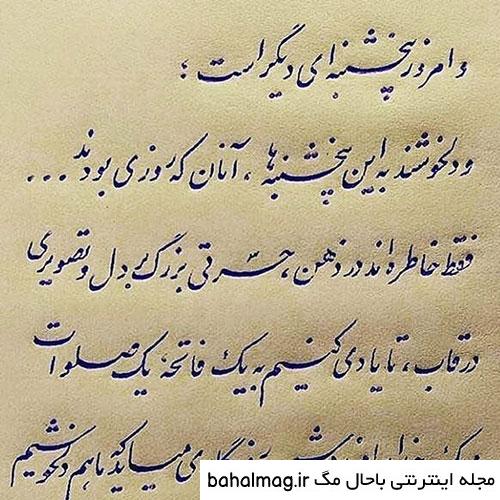 و امروز پنجشنبه ای دیگر است ؛
و دلخوشند به این پنجشنبه ها ، آنان که روزی بودند ...
فقط خاطره اند در ذهن ، حسرتی بزرگ بر دل و تصویری
در قاب ، تا یادی کنیم به یک فاتحه یک صلوات
میاید که ما هم دلخوشیم
مجله اینترنتی باحال مگ bahalmag.ir